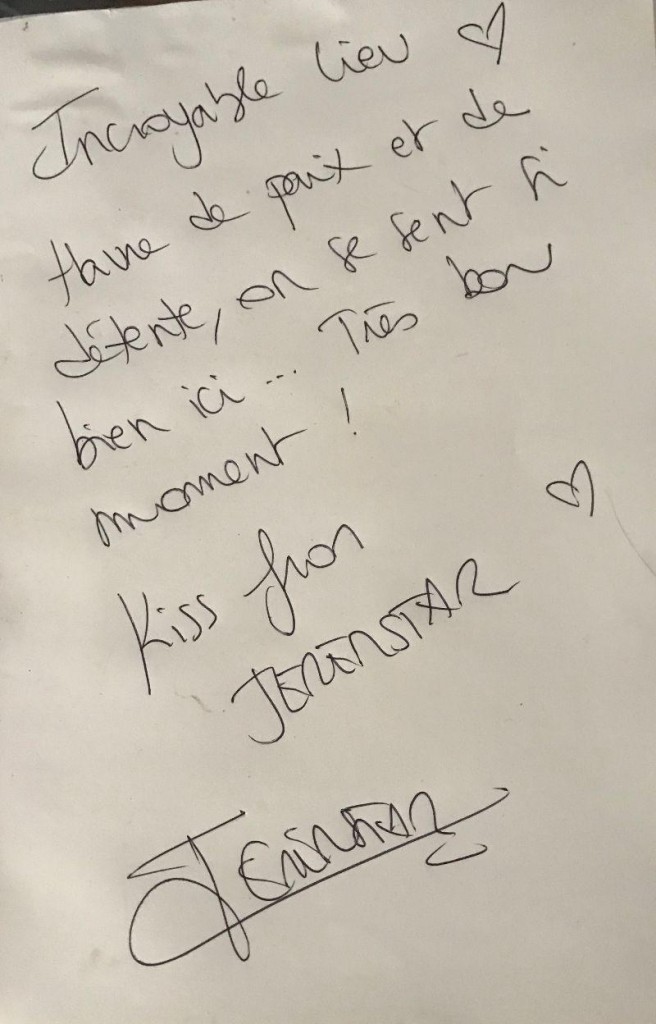 Incroyable lieu ♡
Havre de paix et de
détente, on se sent si
bien ici... Très bon
moment !
Kiss from ♡
JEREMSTAR
Jeremstar